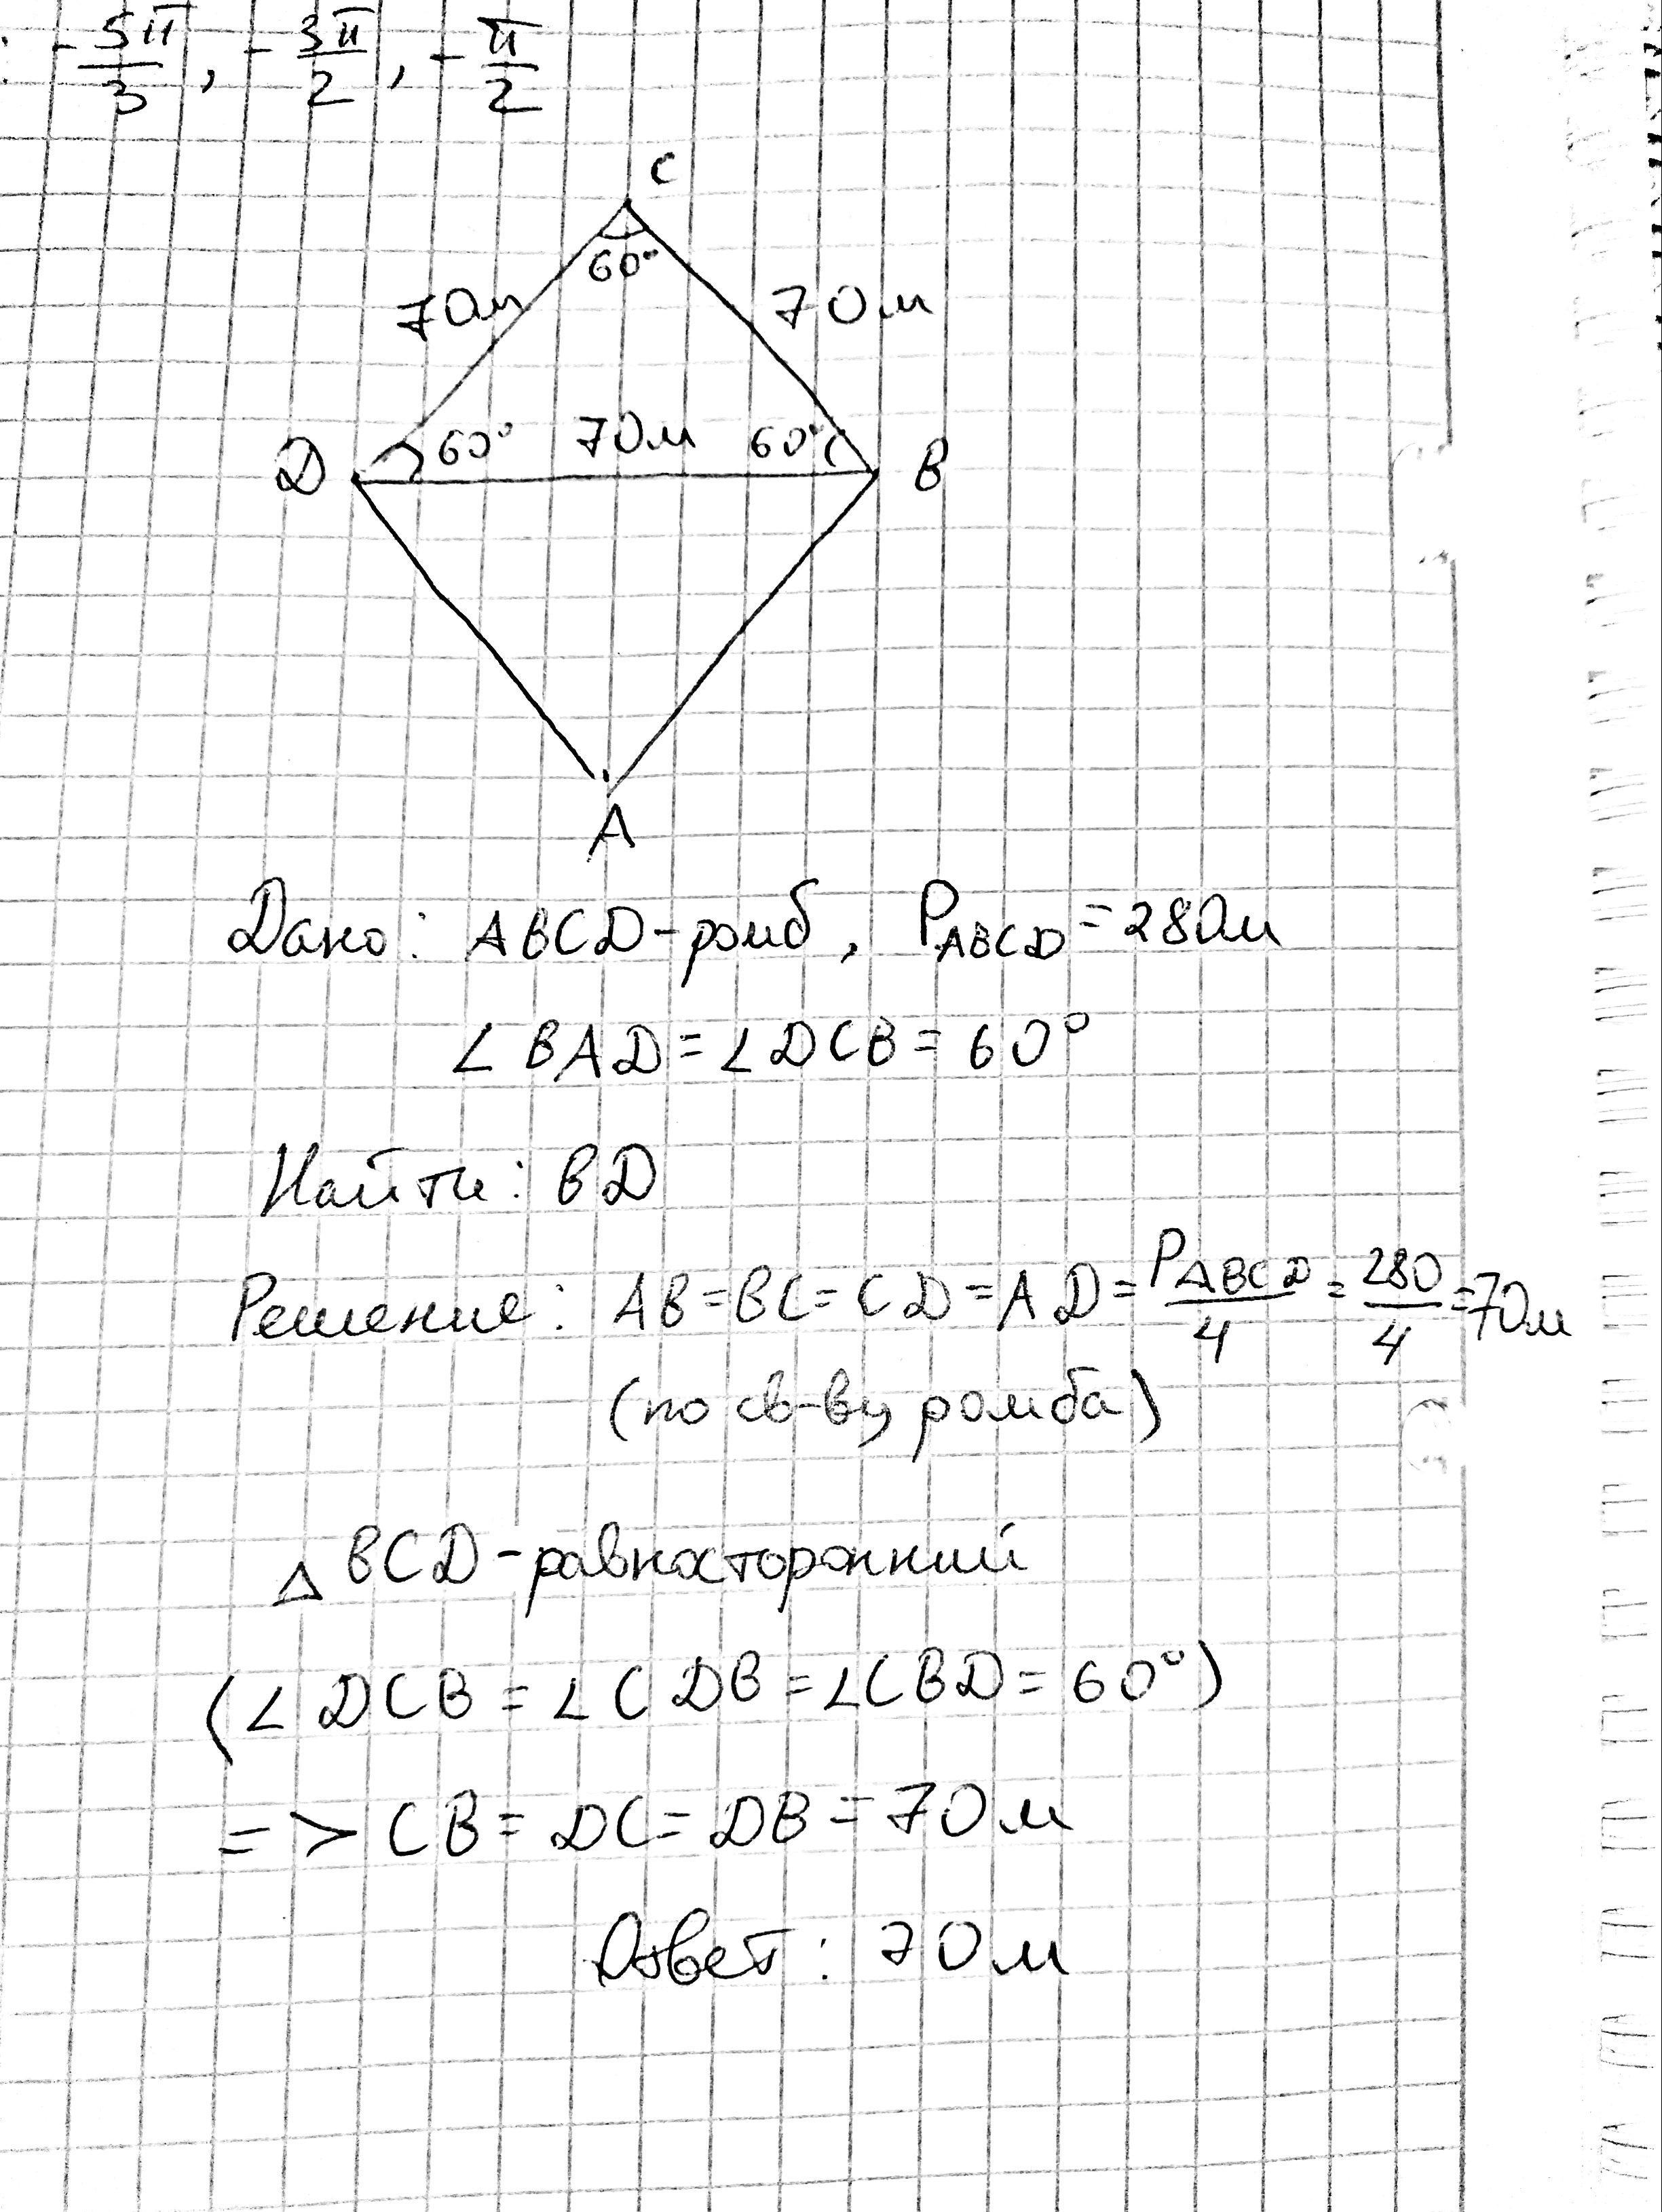 : -5π/3, -3π/2, -π/2
C
60°
70м 70м
D 60° 70м 60° B
A
Дано: ABCD-ромб, P_ABCD = 280м
∠BAD = ∠DCB = 60°
Найти: BD
Решение: AB = BC = CD = AD = P_ABCD/4 = 280/4 = 70м
(по св-ву ромба)
△ BCD-равносторонний
(∠DCB = ∠CDB = ∠CBD = 60°)
=> CB = DC = DB = 70м
Ответ: 70м